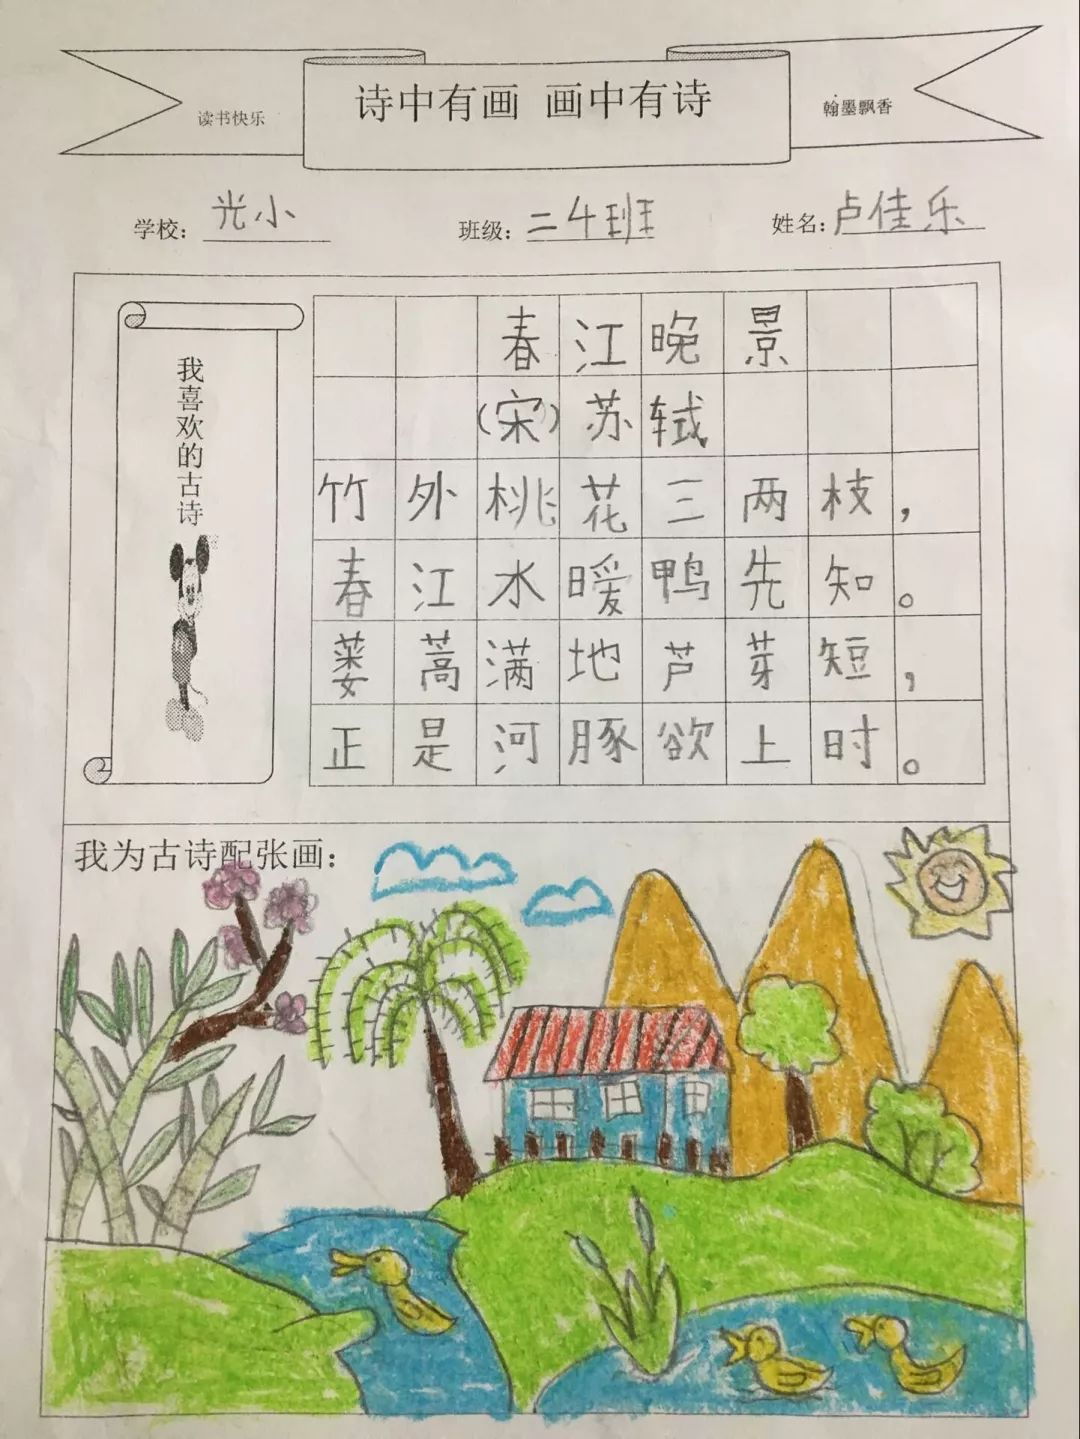 读书快乐
诗中有画 画中有诗
翰墨飘香
学校：光小 班级：二4班 姓名：卢佳乐
我喜欢的古诗
春江晚景
（宋）苏轼
竹外桃花三两枝，
春江水暖鸭先知。
蒌蒿满地芦芽短，
正是河豚欲上时。
我为古诗配张画：